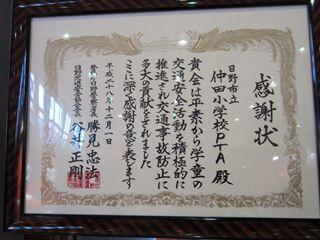 感謝状
日野市立
仲田小学校PTA 殿
貴会は平素から学童の
交通安全活動を積極的に
推進され交通事故防止に
多大の貢献をされました
ここに深く感謝の意を表します
平成二十八年十二月一日
警視庁日野警察署長 勝見忠法
日野交通安全協会会長 谷井正剛